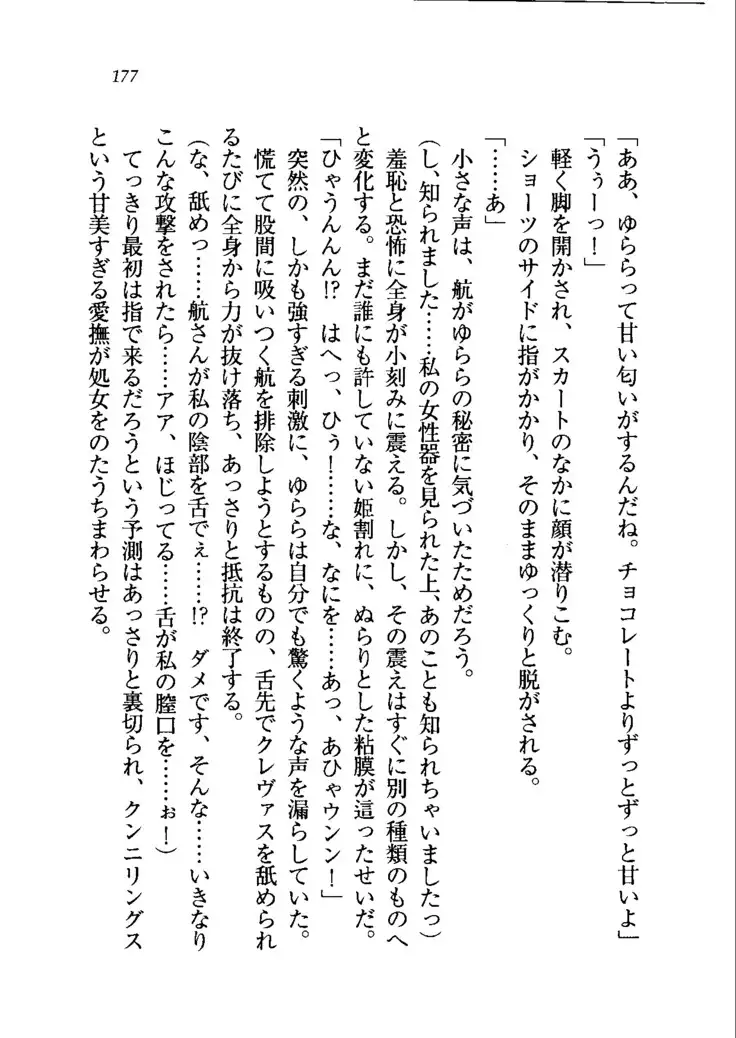 177
「ああ、ゆららって甘い匂いがするんだね。チョコレートよりずっとずっと甘いよ」
「うぅーっ！」
軽く脚を開かされ、スカートのなかに顔が潜りこむ。
ショーツのサイドに指がかかり、そのままゆっくりと脱がされる。
「……あ」
小さな声は、航がゆららの秘密に気づいたためだろう。
（し、知られました……私の女性器を見られた上、あのことも知られちゃいましたっ）
羞恥と恐怖に全身が小刻みに震える。しかし、その震えはすぐに別の種類のものへ
と変化する。まだ誰にも許していない姫割れに、ぬらりとした粘膜が這ったせいだ。
「ひゃうんんん!?　はへっ、ひぅ！……な、なにを……あっ、あひゃウンン！」
突然の、しかも強すぎる刺激に、ゆららは自分でも驚くような声を漏らしていた。
慌てて股間に吸いつく航を排除しようとするものの、舌先でクレヴァスを舐められ
るたびに全身から力が抜け落ち、あっさりと抵抗は終了する。
（な、舐めっ……航さんが私の陰部を舌でぇ……!?　ダメです、そんな……いきなり
こんな攻撃をされたら……アア、ほじってる……舌が私の膣口を……ぉ！）
てっきり最初は指で来るだろうという予測はあっさりと裏切られ、クンニリングス
という甘美すぎる愛撫が処女をのたうちまわらせる。